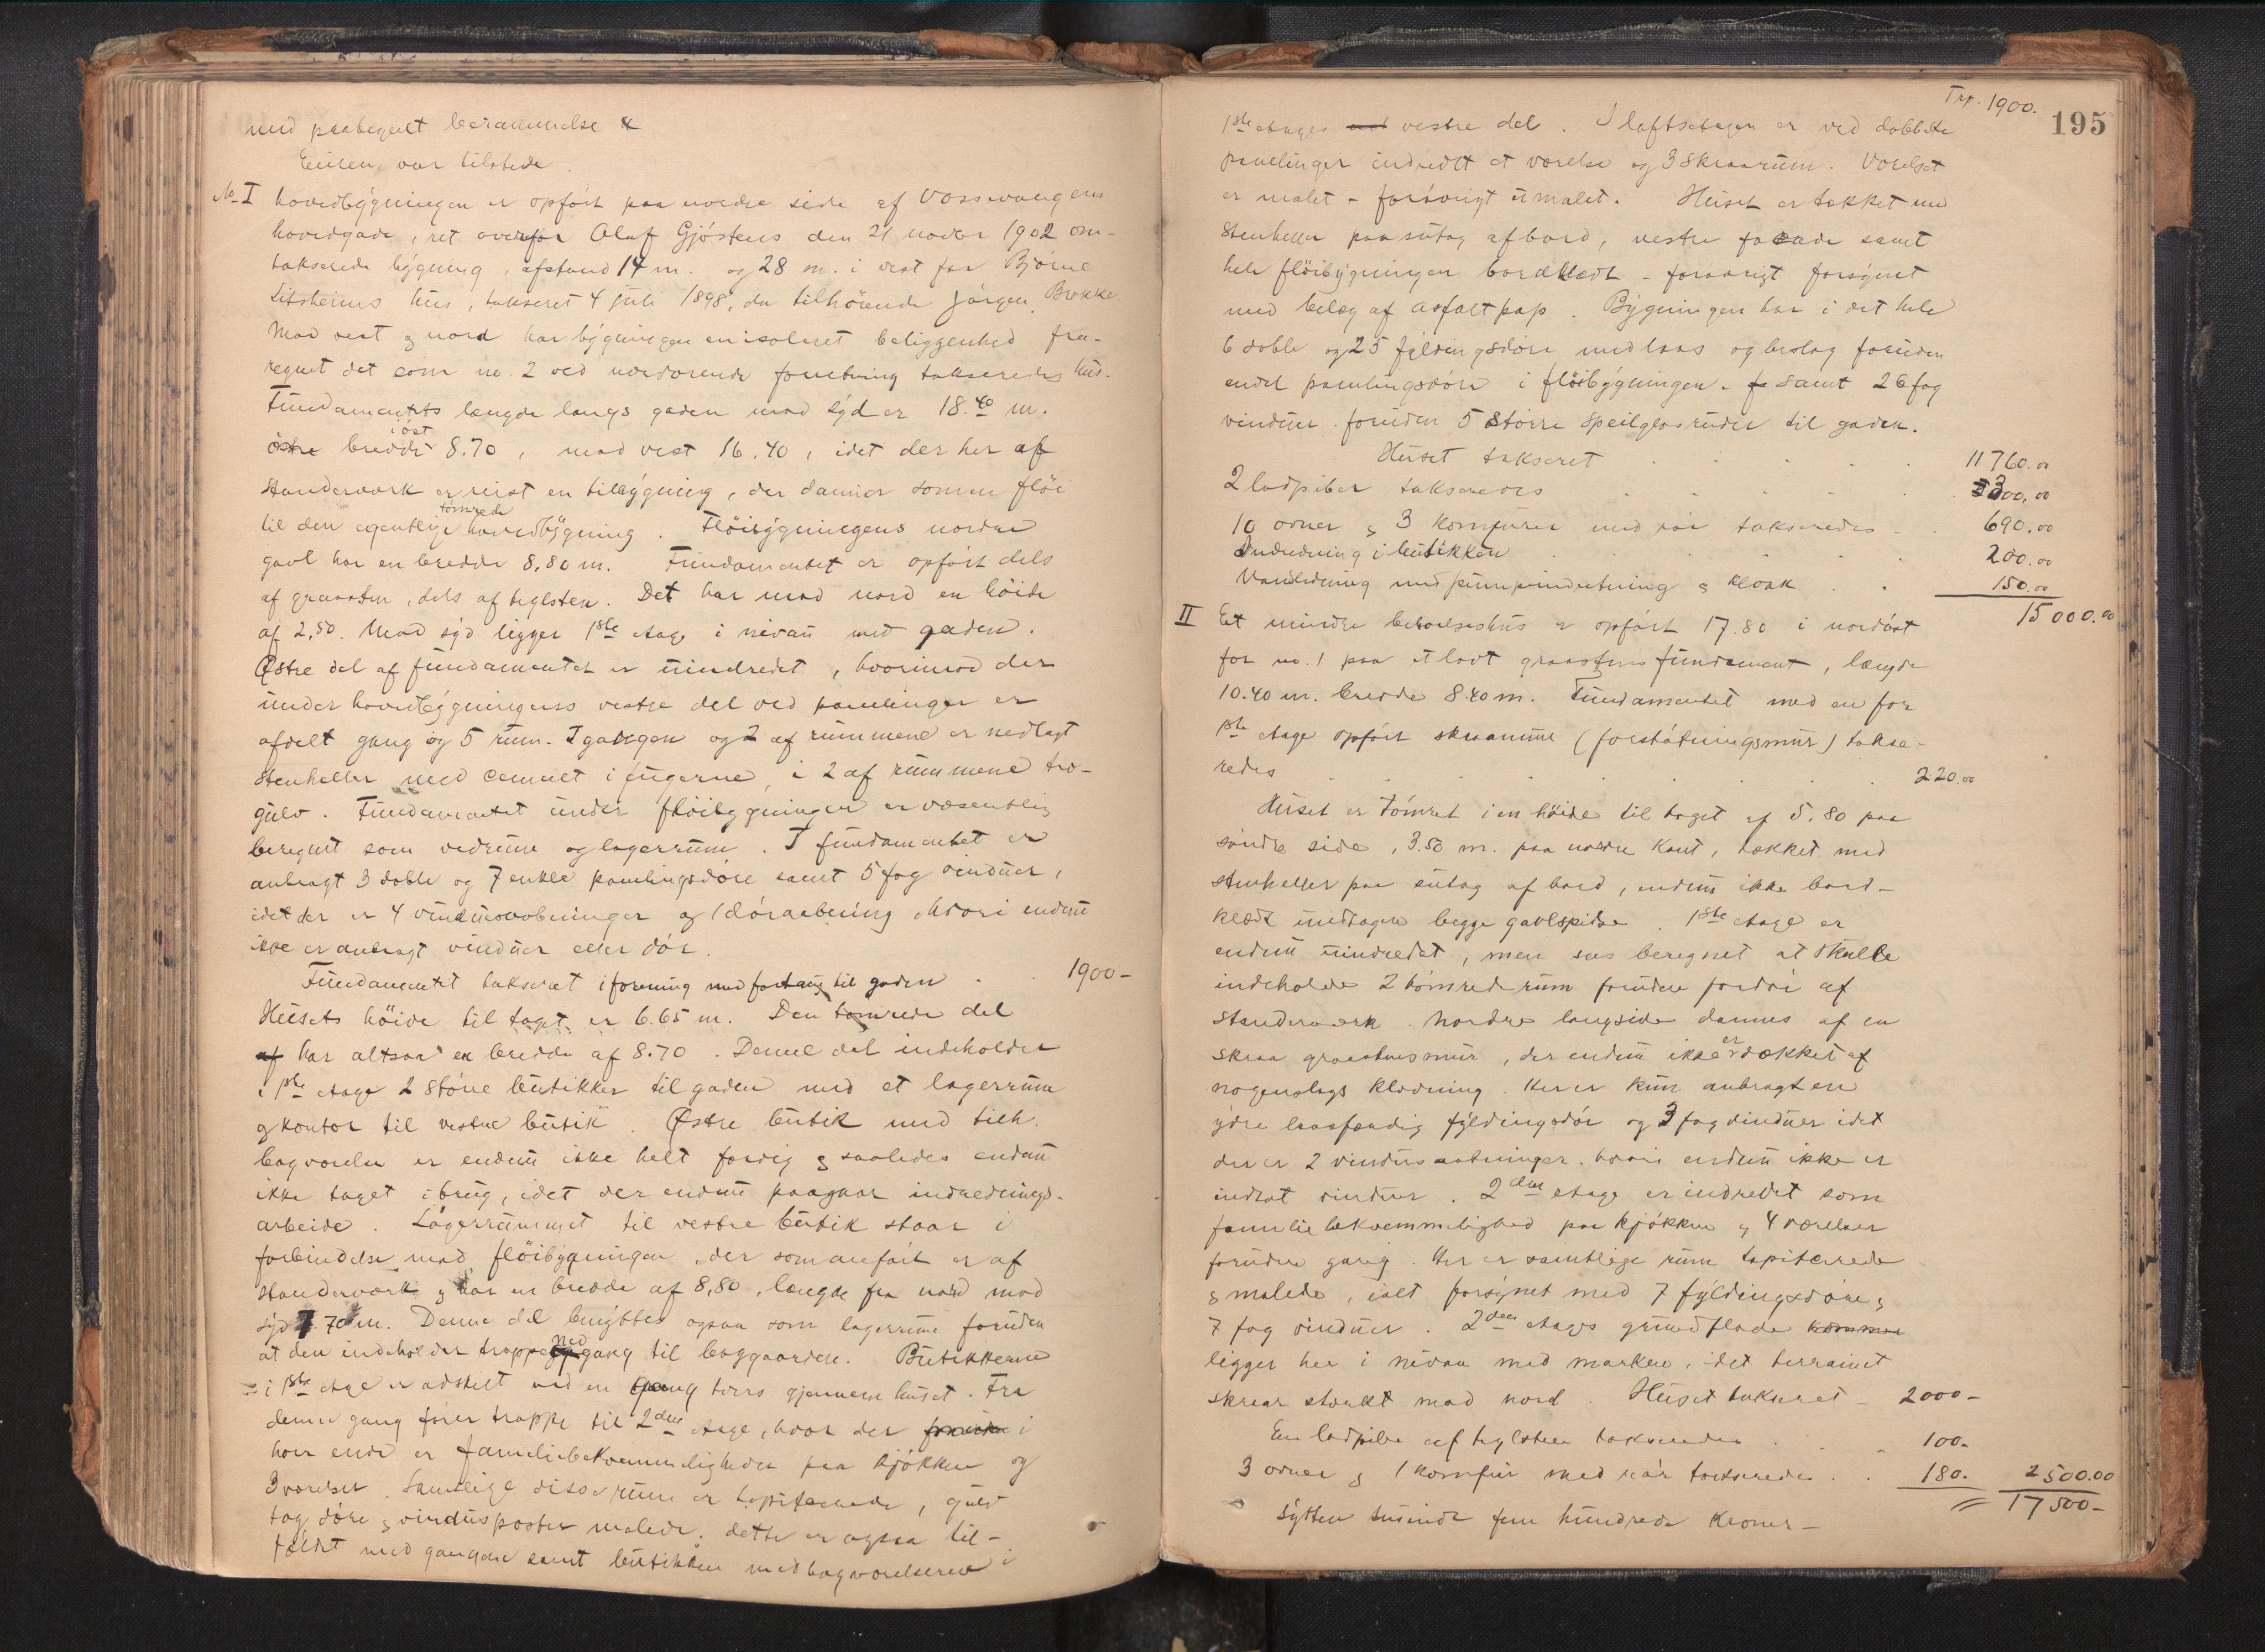 med paategnet berammelse &
Eieren var tilstede.
No I hovedbygningen er opført paa nordre side af Vossevangens
hovedgade, ret overfor Olaf Gjøsteins den 21 novbr 1902 om-
takserede bygning, afstand 14 m. og 28 m. i vest for Bjørne
Litsheims hus, takseret 4 juli 1898, da tilhørende Jørgen Brekke.
Mod vest & nord har bygningen en isoleret beliggenhed fra-
regnet det som no. 2 ved nærværende forretning takseredes hus.
Fundamentets længde langs gaden mod syd er 18.40 m.
østre bredde i øst 8.70, mod vest 16.40, idet der her af
standerværk er reist en tilbygning, der danner som en fløi
til den egentlige tømrede hovedbygning. Fløibygningens nordre
gavl har en bredde 8,80 m. Fundamentet er opført dels
af graasten, dels af teglsten. Det har mod nord en høide
af 2,50. Mod syd ligger 1ste etage i nivau med gaden.
Østre del af fundamentet er uindredet, hvorimod der
under hovedbygningens vestre del ved panelinger er
afdelt gang og 5 rum. I gangen og 2 af rummene er nedlagt
stenheller med cement i fugerne, i 2 af rummene træ-
gulv. Fundamentet under fløibygningen er væsentlig
beregnet som vedrum og lagerrum. I fundamentet er
anbragt 3 doble og 7 enkle panelingsdøre samt 5 fag vinduer,
idet der er 4 vinduesaabninger og 1 døraabning hvori endnu
ikke er anbragt vinduer eller dør.
Fundamentet takseret i forening med fortaug til gaden . . 1900-
Husets høide til taget er 6.65 m. Den tømrede del
af har altsaa en bredde af 8.70. Denne del indeholder
i 1ste etage 2 større butikker til gaden med et lagerrum
& kontor til vestre butik. Østre butik med tilh.
bagværelse er endnu ikke helt færdig & saaledes endnu
ikke taget i brug, idet der endnu paagaar indrednings-
arbeide. Lagerrummet til vestre butik staar i
forbindelse med fløibygningen, der som anført er af
standerværk & har en bredde af 8,80, længde fra nord mod
syd 7.70 m. Denne del benyttes ogsaa som lagerrum foruden
at den indeholder trappenedgang til baggaarden. Butikkerne
i 1ste etage er adskilt ved en gang tvers gjennem huset. Fra
denne gang fører trappe til 2den etage, hvor der foruden i
hver ende er familiebekvemmeligheder paa kjøkken og
3 værelser. Samtlige disse rum er tapiserede, gulv
tag døre & vinduesposter malede. dette er ogsaa til-
fældet med gangene samt butikken med bagværelserne i
Trp. 1900.
195
1ste etages vestre del. I loftsetagen er ved dobbelte
panelinger indredet et værelse og 3 skraarum. Værelset
er malet - forøvrigt umalet. Huset er tækket med
stenheller paa sutag af bord, vestre facade samt
hele fløibygningen bordklædt - forøvrigt forsynet
med belæg af asfaltpap. Bygningen har i det hele
6 doble og 25 fyldingsdøre med laas og beslag foruden
endel panelingsdøre i fløibygningen - samt 26 fag
vinduer foruden 5 større speilglasruder til gaden.
Huset takseret . . . . . 11760.00
2 ladpiber takseredes . . . . . 300,00
10 ovner & 3 komfurer med rør takseredes . . 690.00
Indredning i butikken . . . . . 200.00
Vandledning med pumpeindretning & kloak . . 150.00
15000.00
II Et mindre beboelseshus er opført 17.80 i nordøst
for no. 1 paa et lavt graastens fundament, længde
10.40 m. bredde 8.40 m. Fundamentet med en for
1ste etage opført skraamur (forstøtningsmur) takse-
redes . . . . . . 220.00
Huset er tømret i en høide til taget af 5.80 paa
søndre side, 3.50 m. paa nordre kant, tækket med
stenheller paa sutag af bord, endnu ikke bord-
klædt undtagen begge gavlspidse. 1ste etage er
endnu uindredet, men sees beregnet at skulle
indeholde 2 tømrede rum foruden fordør af
standerværk. Nordre langside dannes af en
skraa graastensmur, der endnu ikke er dækket af
nogenslags klædning. Her er kun anbragt en
ydre laasfærdig fyldingsdør og 3 fag vinduer idet
der er 2 vinduesaabninger, hvori endnu ikke er
indsat vinduer. 2den etage er indredet som
familiebekvemmelighed paa kjøkken & 4 værelser
foruden gang. Her er samtlige rum tapiserede
& malede, ialt forsynet med 7 fyldingsdøre &
7 fag vinduer. 2den etages grundflade kommer
ligger her i nivau med marken, idet terrainet
skraar stærkt mod nord. Huset takseret - 2000-
En ladpibe af teglsten takseredes . . . 100-
3 ovner & 1 komfur med rør takseredes . . 180. 2500.00
17500-
Sytten tusinde fem hundrede Kroner-